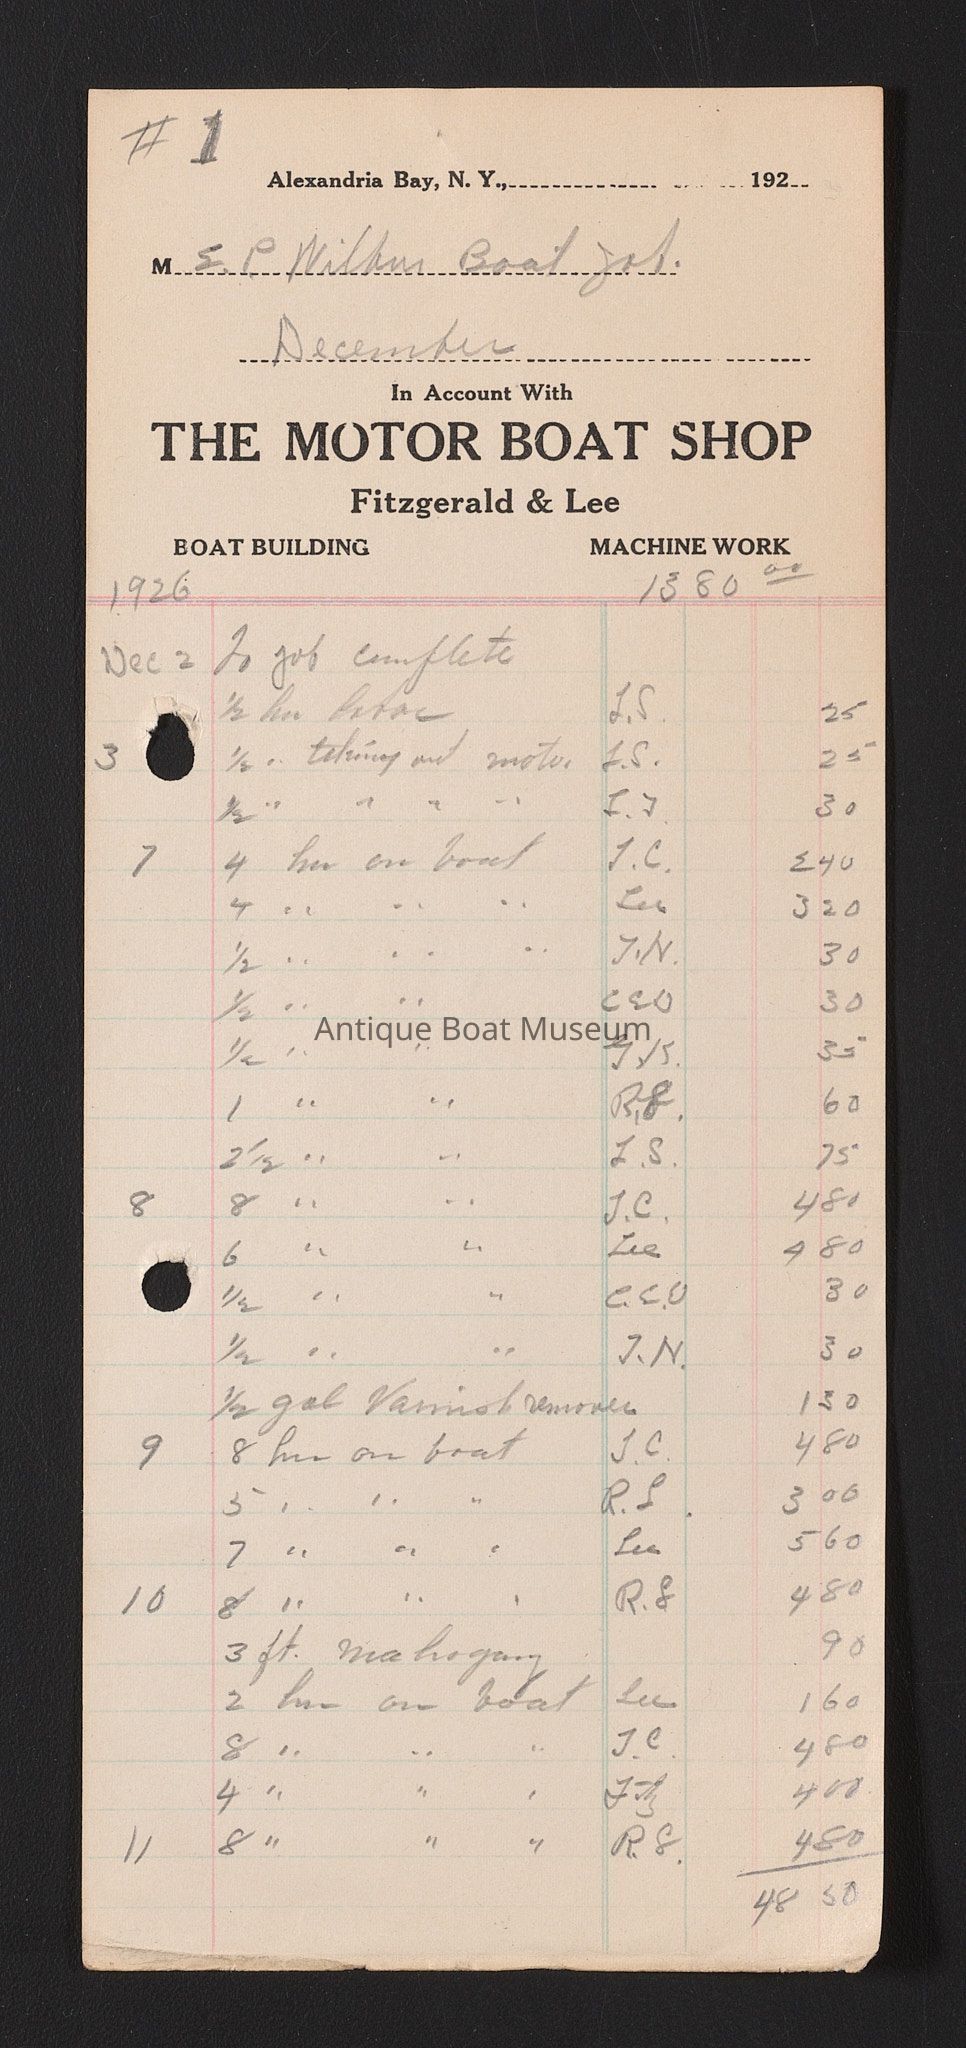 # 1
Alexandria Bay, N. Y., 192
M E. P. Wilbur Boat job.
December
In Account With
THE MOTOR BOAT SHOP
Fitzgerald & Lee
BOAT BUILDING MACHINE WORK
1926 1380 00
Dec 2 To job complete
1/2 hr L.S. 25
3 1/2 " taking out motor L.S. 25
1/2 " " " " 30
7 4 hrs on boat J.C. 240
4 " " " Lee 320
1/2 " " " J.N. 30
1/2 " " C.E.O 30
Antique Boat Museum
1/2 " " 35
1 " " 60
2 1/2 " " L.S. 75
8 8 " " J.C. 480
6 " " Lee 480
1/2 " " C.E.O 30
1/2 " " J.N. 30
1/2 gal Varnish remover 130
9 8 hrs on boat J.C. 480
5 " " " R.S. 300
7 " " " Lee 560
10 8 " " " R.S 480
3 ft. mahogany 90
2 hrs on boat Lee 160
8 " " " J.C. 480
4 " " " Fitz 400
11 8 " " " R.S. 480
48 50